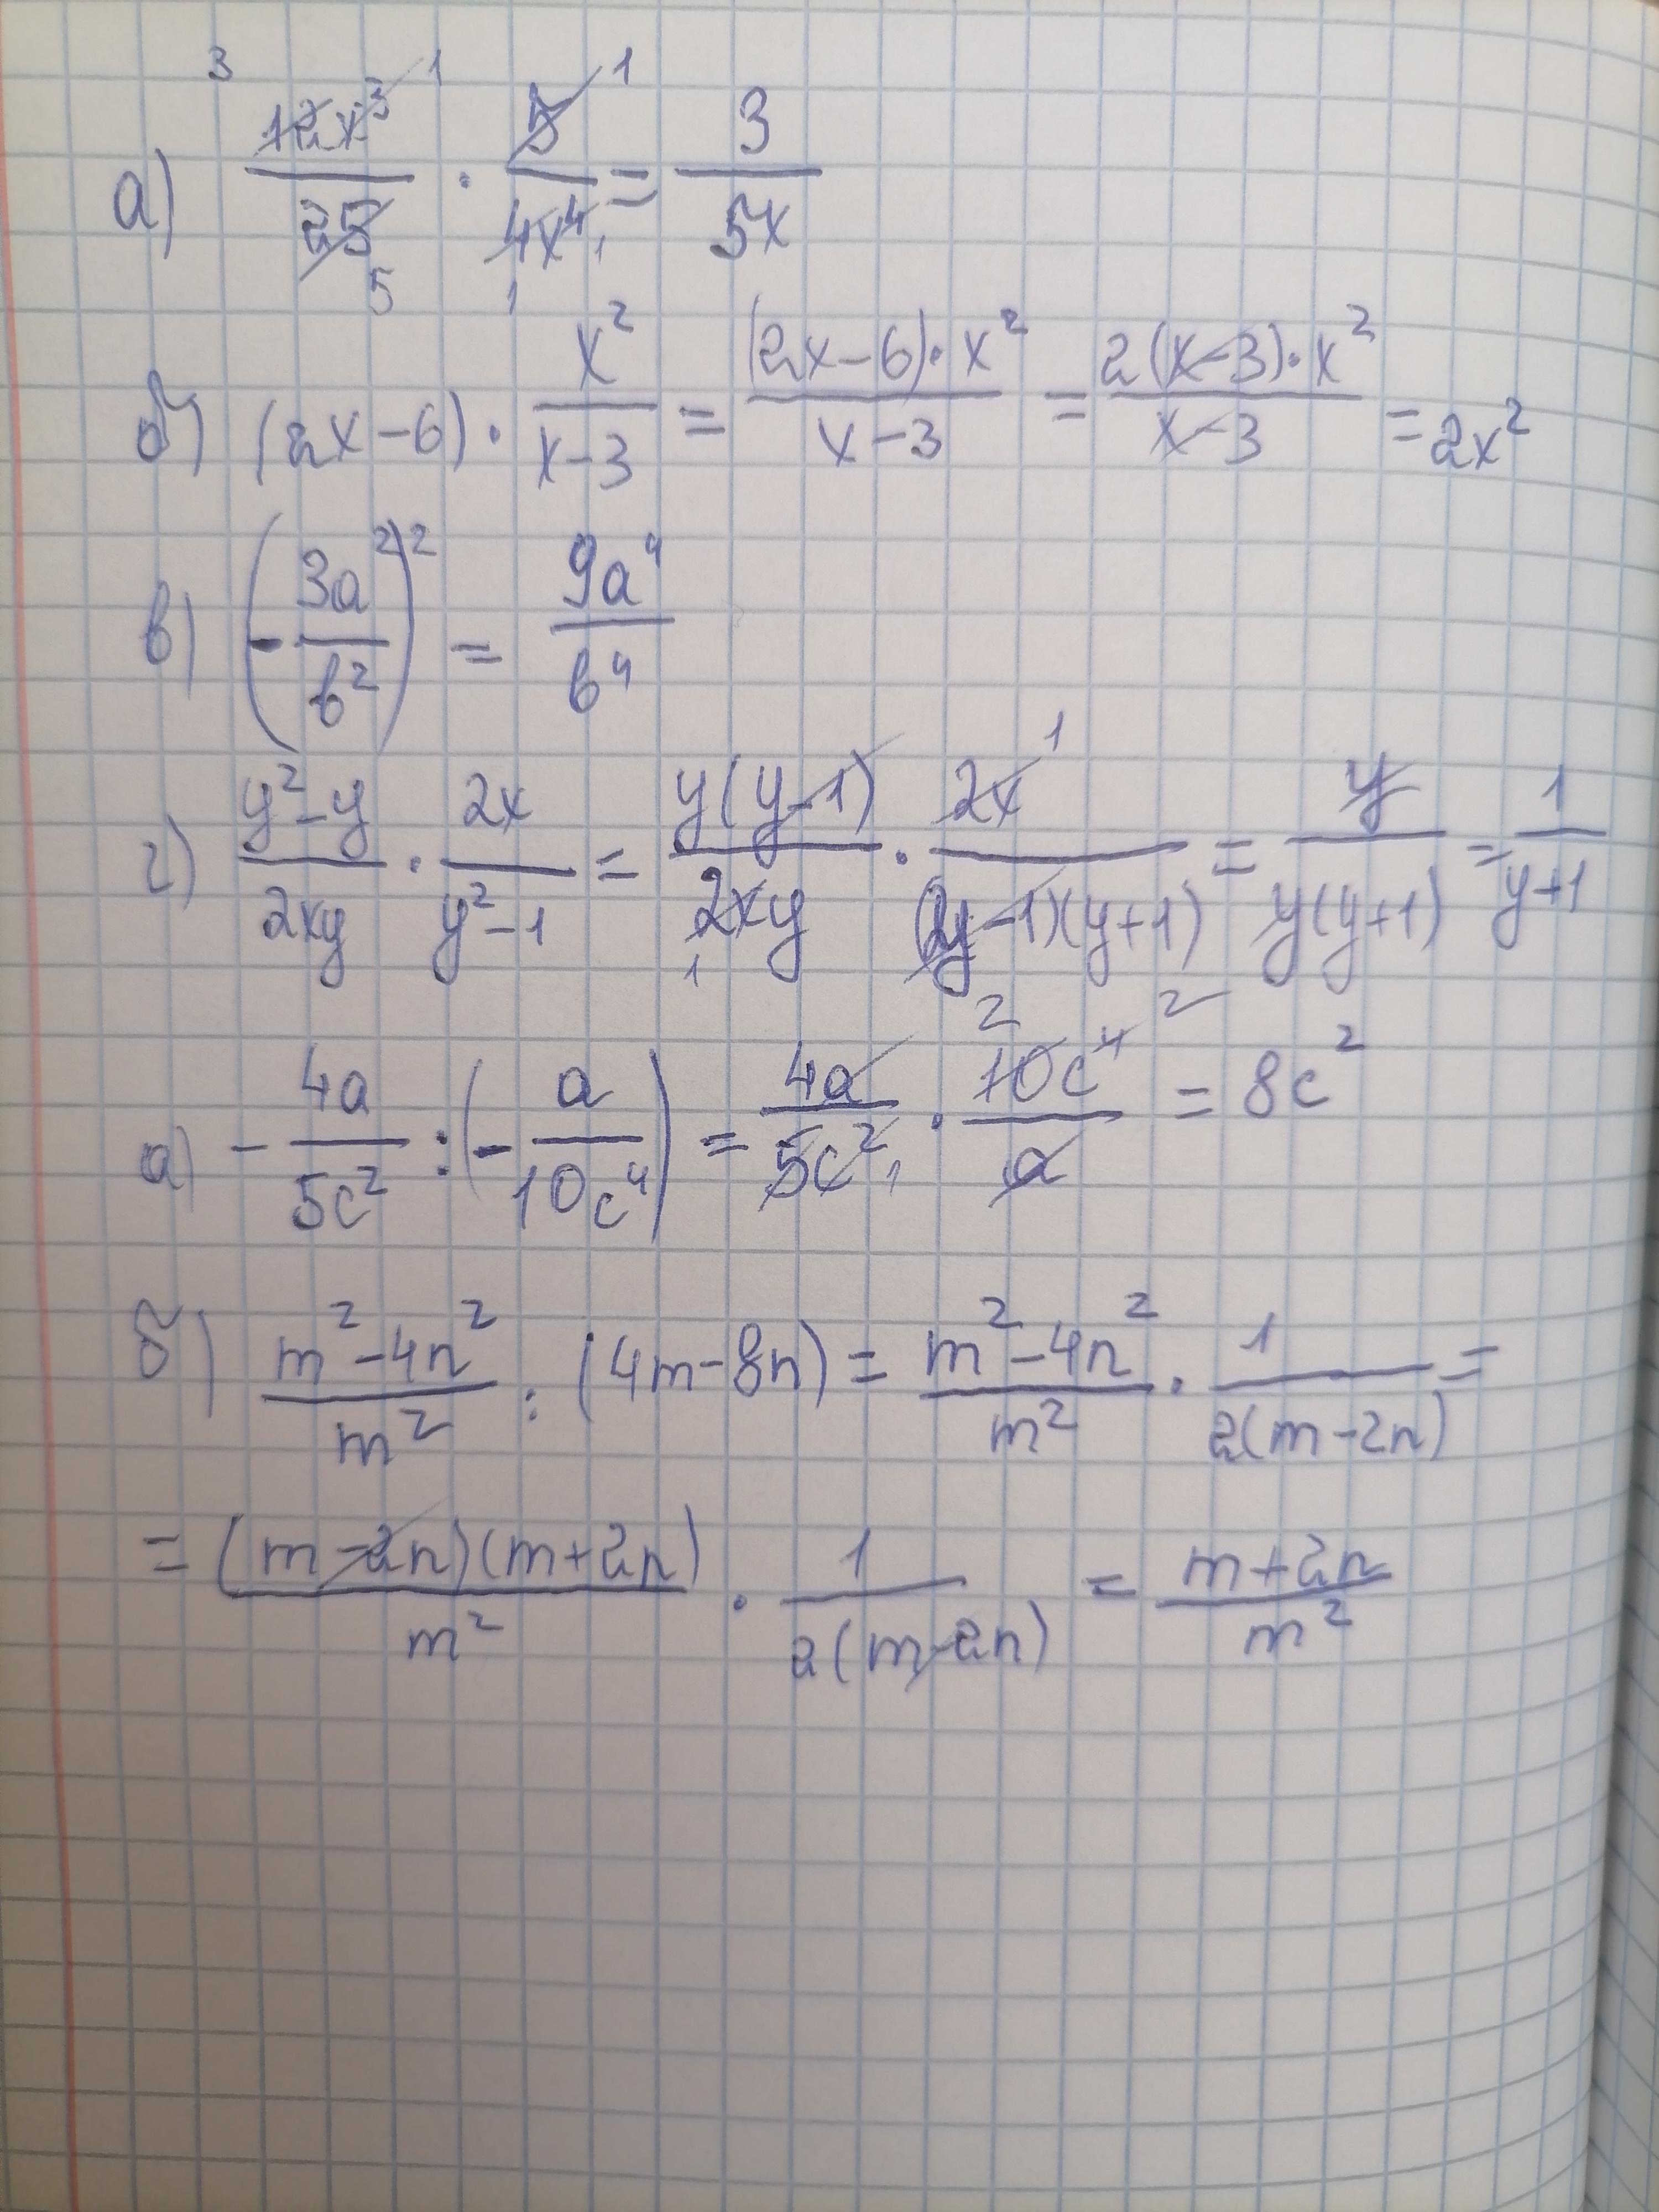 а) 12x³/25 · 5/4x⁴ = 3/5x
б) (2x-6) · x²/x-3 = (2x-6)·x²/x-3 = 2(x-3)·x²/x-3 = 2x²
в) (-3a²/b²)² = 9a⁴/b⁴
г) y²-y/2xy · 2x/y²-1 = y(y-1)/2xy · 2x/(y-1)(y+1) = y/y(y+1) = 1/y+1
а) -4a/5c² : (-a/10c⁴) = 4a/5c² · 10c⁴/a = 8c²
б) m²-4n²/m² : (4m-8n) = m²-4n²/m² · 1/2(m-2n) =
= (m-2n)(m+2n)/m² · 1/2(m-2n) = m+2n/m²